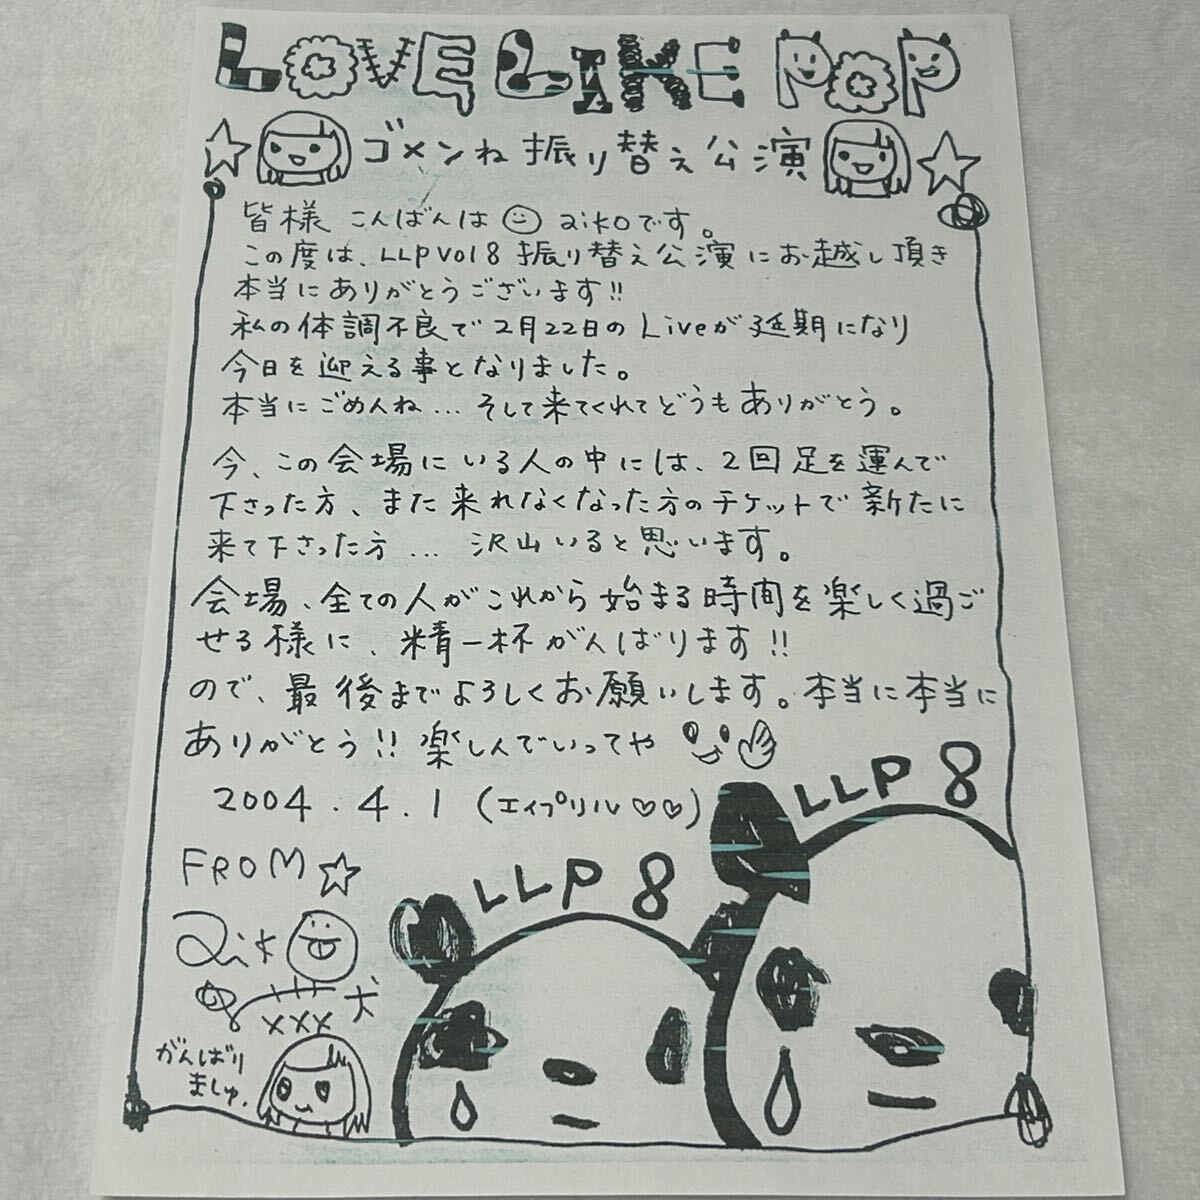 LOVE LIKE POP
ゴメンね振り替え公演
皆様 こんばんは aikoです。
この度は、LLP Vol 8 振り替え公演にお越し頂き
本当にありがとうございます!!
私の体調不良で2月22日のLiveが延期になり
今日を迎える事となりました。
本当にごめんね... そして来てくれてどうもありがとう。
今、この会場にいる人の中には、2回足を運んで
下さった方、また来れなくなった方のチケットで新たに
来て下さった方... 沢山いると思います。
会場、全ての人がこれから始まる時間を楽しく過ご
せる様に、精一杯がんばります!!
ので、最後までよろしくお願いします。本当に本当に
ありがとう!! 楽しんでいってや
2004.4.1 (エイプリル♡♡)
LLP 8
FROM☆
LLP 8
aiko
xxx
犬
がんばり
ましゅ.